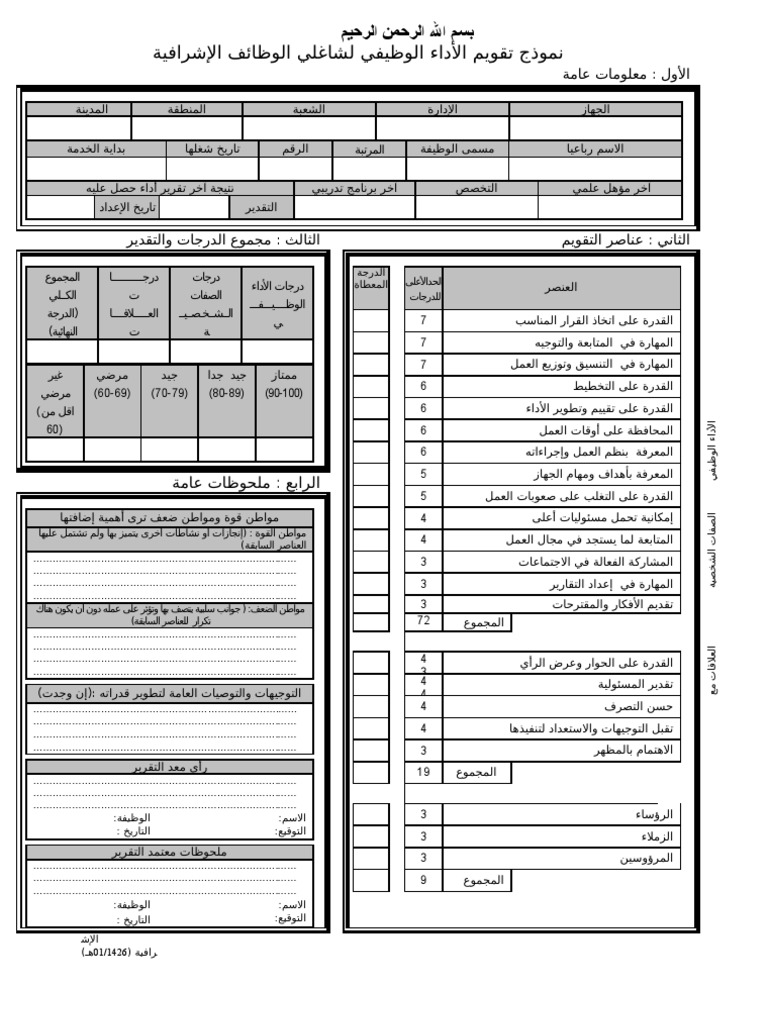 بسم الله الرحمن الرحيم
نموذج تقويم الأداء الوظيفي لشاغلي الوظائف الإشرافية
الأول : معلومات عامة
الجهاز الإدارة الشعبة المنطقة المدينة
الاسم رباعيا مسمى الوظيفة المرتبة الرقم تاريخ شغلها بداية الخدمة
اخر مؤهل علمي التخصص اخر برنامج تدريبي نتيجة اخر تقرير أداء حصل عليه
التقدير تاريخ الإعداد
الثاني : عناصر التقويم
العنصر الحدالأعلى للدرجات الدرجة المعطاة
القدرة على اتخاذ القرار المناسب 7
المهارة في المتابعة والتوجيه 7
المهارة في التنسيق وتوزيع العمل 7
القدرة على التخطيط 6
القدرة على تقييم وتطوير الأداء 6
المحافظة على أوقات العمل 6
المعرفة بنظم العمل وإجراءاته 6
المعرفة بأهداف ومهام الجهاز 5
القدرة على التغلب على صعوبات العمل 5
إمكانية تحمل مسئوليات أعلى 4
المتابعة لما يستجد في مجال العمل 4
المشاركة الفعالة في الاجتماعات 3
المهارة في إعداد التقارير 3
تقديم الأفكار والمقترحات 3
المجموع 72
القدرة على الحوار وعرض الرأي 4
3
تقدير المسئولية 4
4
حسن التصرف 4
تقبل التوجيهات والاستعداد لتنفيذها 4
الاهتمام بالمظهر 3
المجموع 19
الرؤساء 3
الزملاء 3
المرؤوسين 3
المجموع 9
الأداء الوظيفي
الصفات الشخصية
العلاقات مع
الثالث : مجموع الدرجات والتقدير
درجات الأداء الوظـــيـــفـــي
درجات الصفات الـشـخـصـيـة
درجـــــــات العـــــلاقـــات
المجموع الكـلـي (الدرجة النهائية)
ممتاز (90-100)
جيد جدا (80-89)
جيد (70-79)
مرضي (60-69)
غير مرضي (اقل من 60)
الرابع : ملحوظات عامة
مواطن قوة ومواطن ضعف ترى أهمية إضافتها
مواطن القوة : (إنجازات او نشاطات أخرى يتميز بها ولم تشتمل عليها
العناصر السابقة)
مواطن الضعف: ( جوانب سلبية يتصف بها وتؤثر على عمله دون أن يكون هناك
تكرار للعناصر السابقة)
التوجيهات والتوصيات العامة لتطوير قدراته :(إن وجدت)
رأى معد التقرير
الاسم: الوظيفة:
التوقيع: التاريخ :
ملحوظات معتمد التقرير
الاسم: الوظيفة:
التوقيع: التاريخ :
الإش
رافية (01/1426هـ)